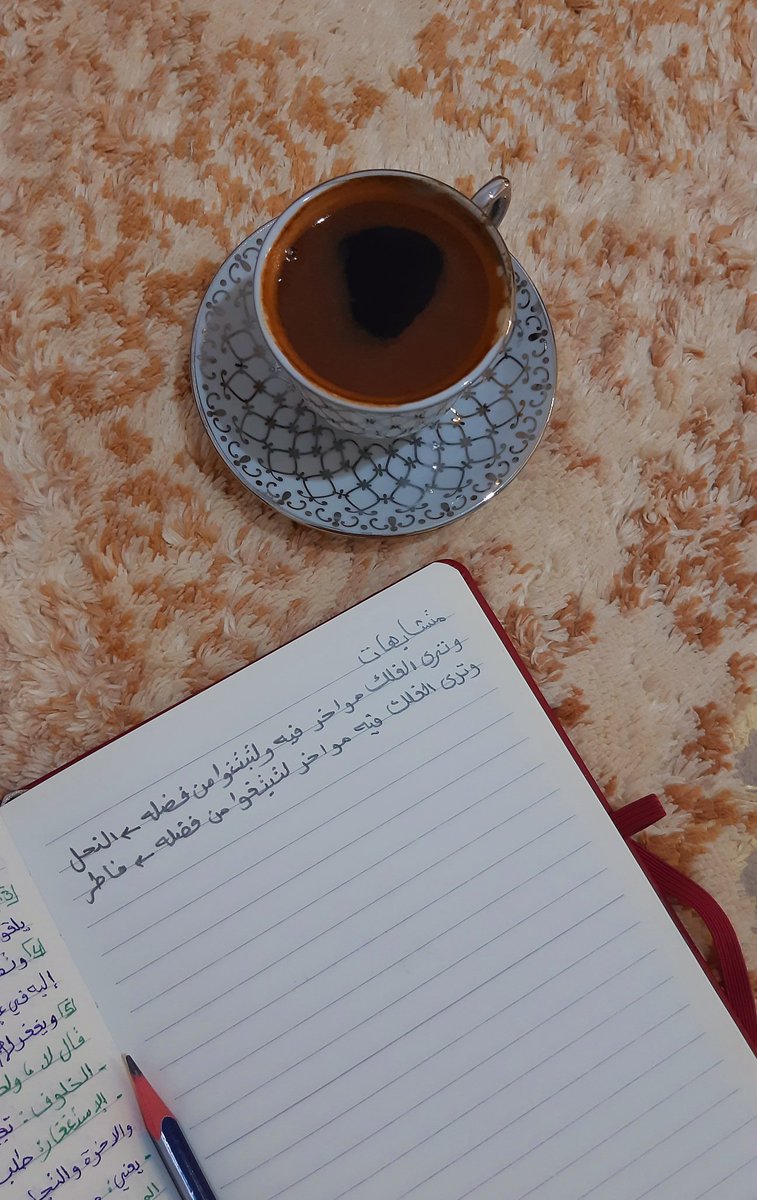 متشابهات
وترى الفلك مواخر فيه ولتبتغوا من فضله ← النحل
وترى الفلك فيه مواخر لتبتغوا من فضله ← فاطر
3
4
إليه في
5
قال لا
- الخلوف:
- الاستغفار: طلب
والآخرة والنجا
- يعني: